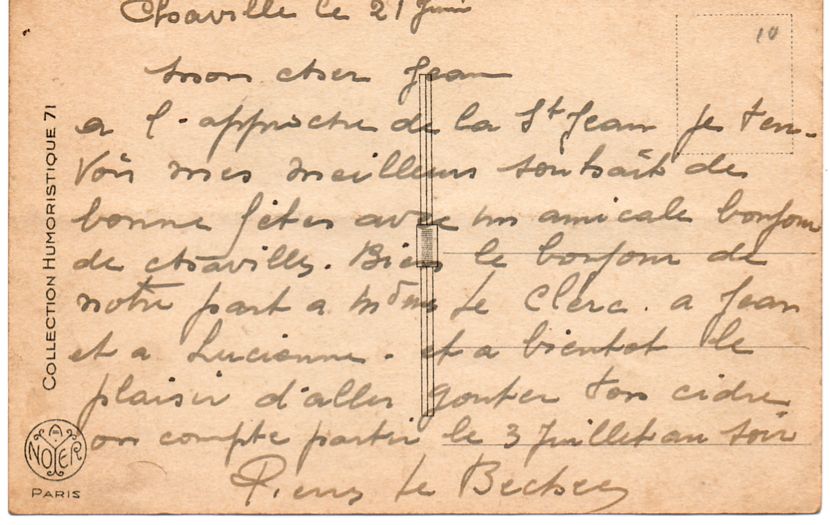 Chaville le 21 Juin
10
mon cher Jean
a l'approche de la St Jean je t'en-
vois mes meilleurs souhaits de
bonne fêtes avec un amicale bonjour
de chaville. Bien le bonjour de
notre part a Mme Le Clerc. a Jean
et a Lucienne. et a bientot le
plaisir d'aller gouter ton cidre
on compte partir le 3 Juillet au soir
Pierre Le
COLLECTION HUMORISTIQUE 71
A NOYER
PARIS